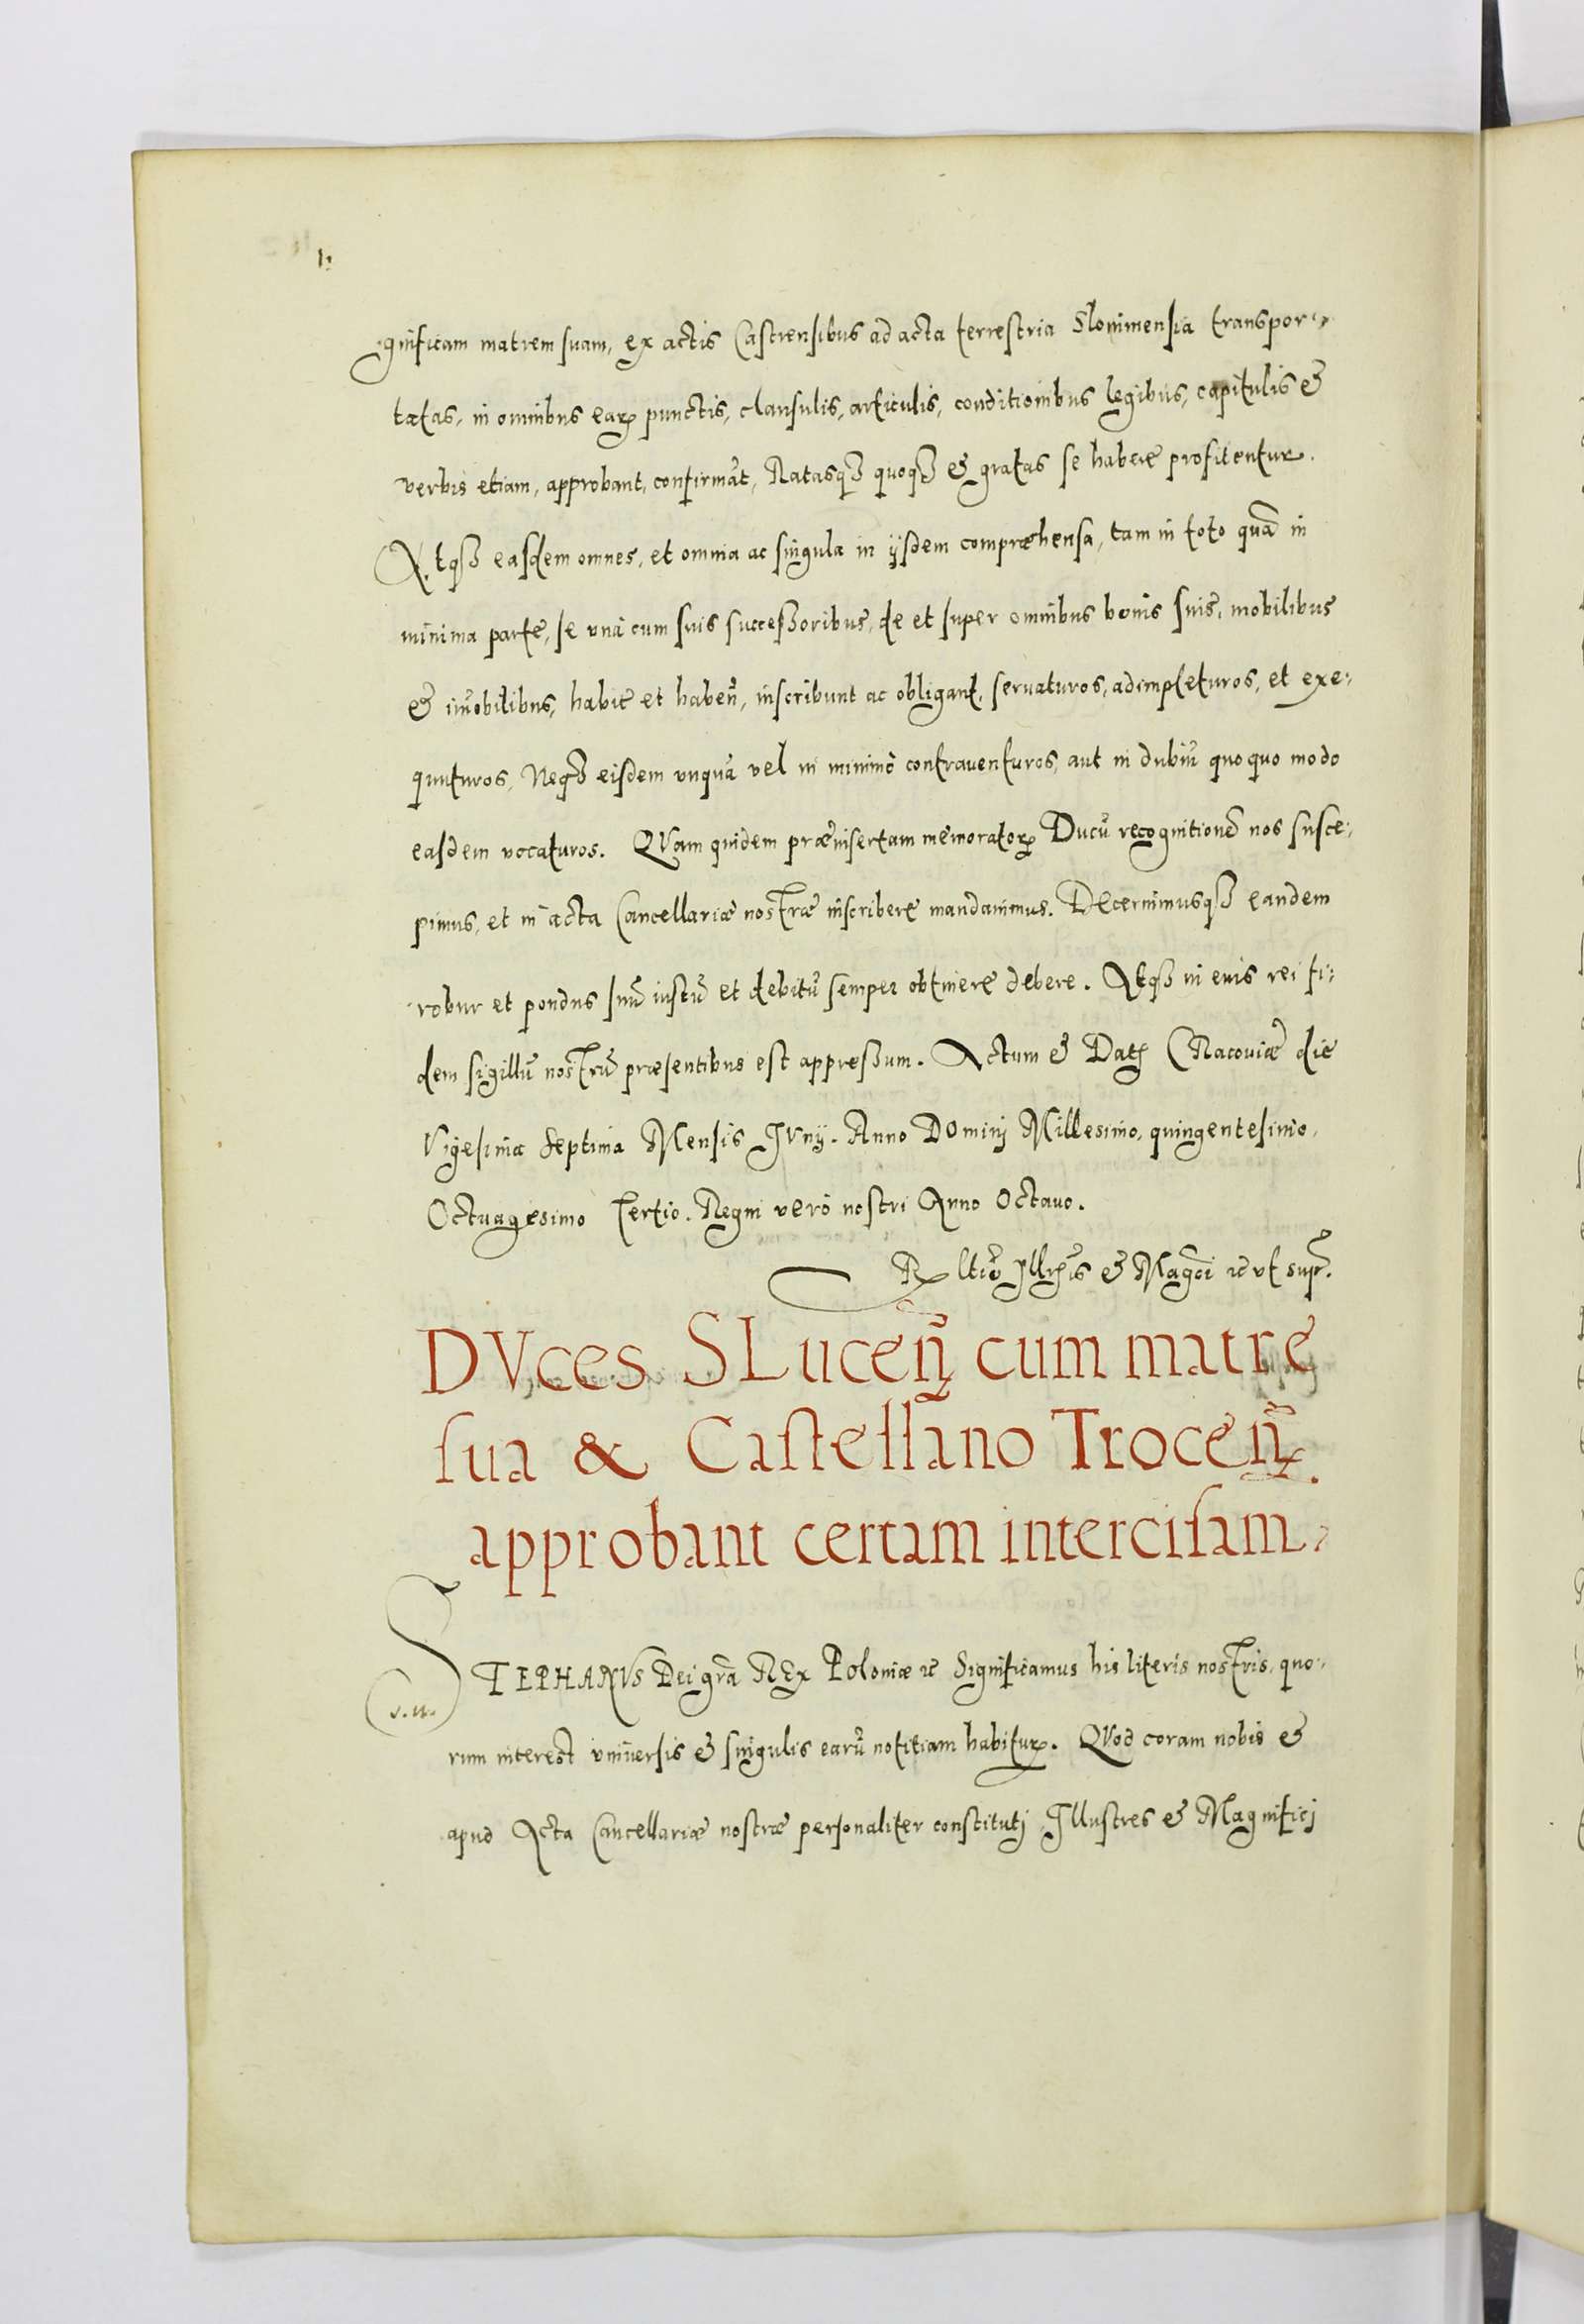 gnificam matrem suam, ex actis Castrensibus ad acta terrestria Slonimensia transpor-
tatas, in omnibus earꝝ punctis, clausulis, articulis, conditionibus legibus, capitulis &
verbis etiam, approbant, confirmāt, Ratasqꝫ quoqꝫ & gratas se habere profitentur.
Atqꝫ easdem omnes, et omnia ac singula in ijsdem compræhensa, tam in toto quā in
minima parte, se vnà cum suis successoribus, de et super omnibus bonis suis, mobilibus
& im̄obilibus, habit̄ et haben̄, inscribunt ac obligant, seruaturos, adimpleturos, et exe-
quuturos, Neqꝫ eisdem vnquā vel in minimo contrauenturos, aut in dubiū quoquo modo
easdem vocaturos. QVam quidem præinsertam memoratorꝝ Ducū recognitionē nos susce-
pimus, et in acta Cancellariæ nostræ inscribere mandauimus. DEcernimusqꝫ eandem
robur et pondus suū iustū et debitū semper obtinere debere. Atqꝫ in euis rei fi-
dem sigillū nostrū præsentibus est appressum. Actum & Datꝭ CRacouiæ die
Vigesima septima Mensis IVnij. Anno DOminj Millesimo, quingentesimo,
Octuagesimo Tertio. Regni verò nostri Anno Octauo.
& Magci ꝛc vt supr̄.
DVces SLucen̄ cum matre
sua & Castellano Trocen̄.
approbant certam intercisam,
STEPHANVS Dei gr̄a REx Poloniæ ꝛc Significamus his literis nostris, quo-
rum interest vniuersis & singulis earū notitiam habiturꝭ. QVod coram nobis &
apud Acta Cancellariæ nostræ personaliter constitutj Illustres & Magnificj